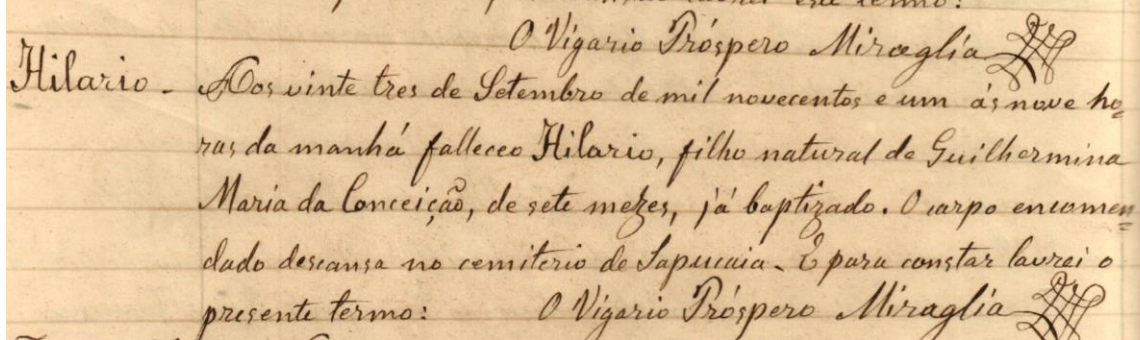 esse termo:
O Vigario Próspero Miraglia
Hilario - Aos vinte tres de Setembro de mil novecentos e um ás nove ho=
ras da manhá falleceo Hilario, filho natural de Guilhermina
Maria da Conceição, de sete mezes, já baptizado. O corpo encomen=
dado descansa no cemiterio de Sapucaia. E para constar lavrei o
presente termo: O Vigario Próspero Miraglia